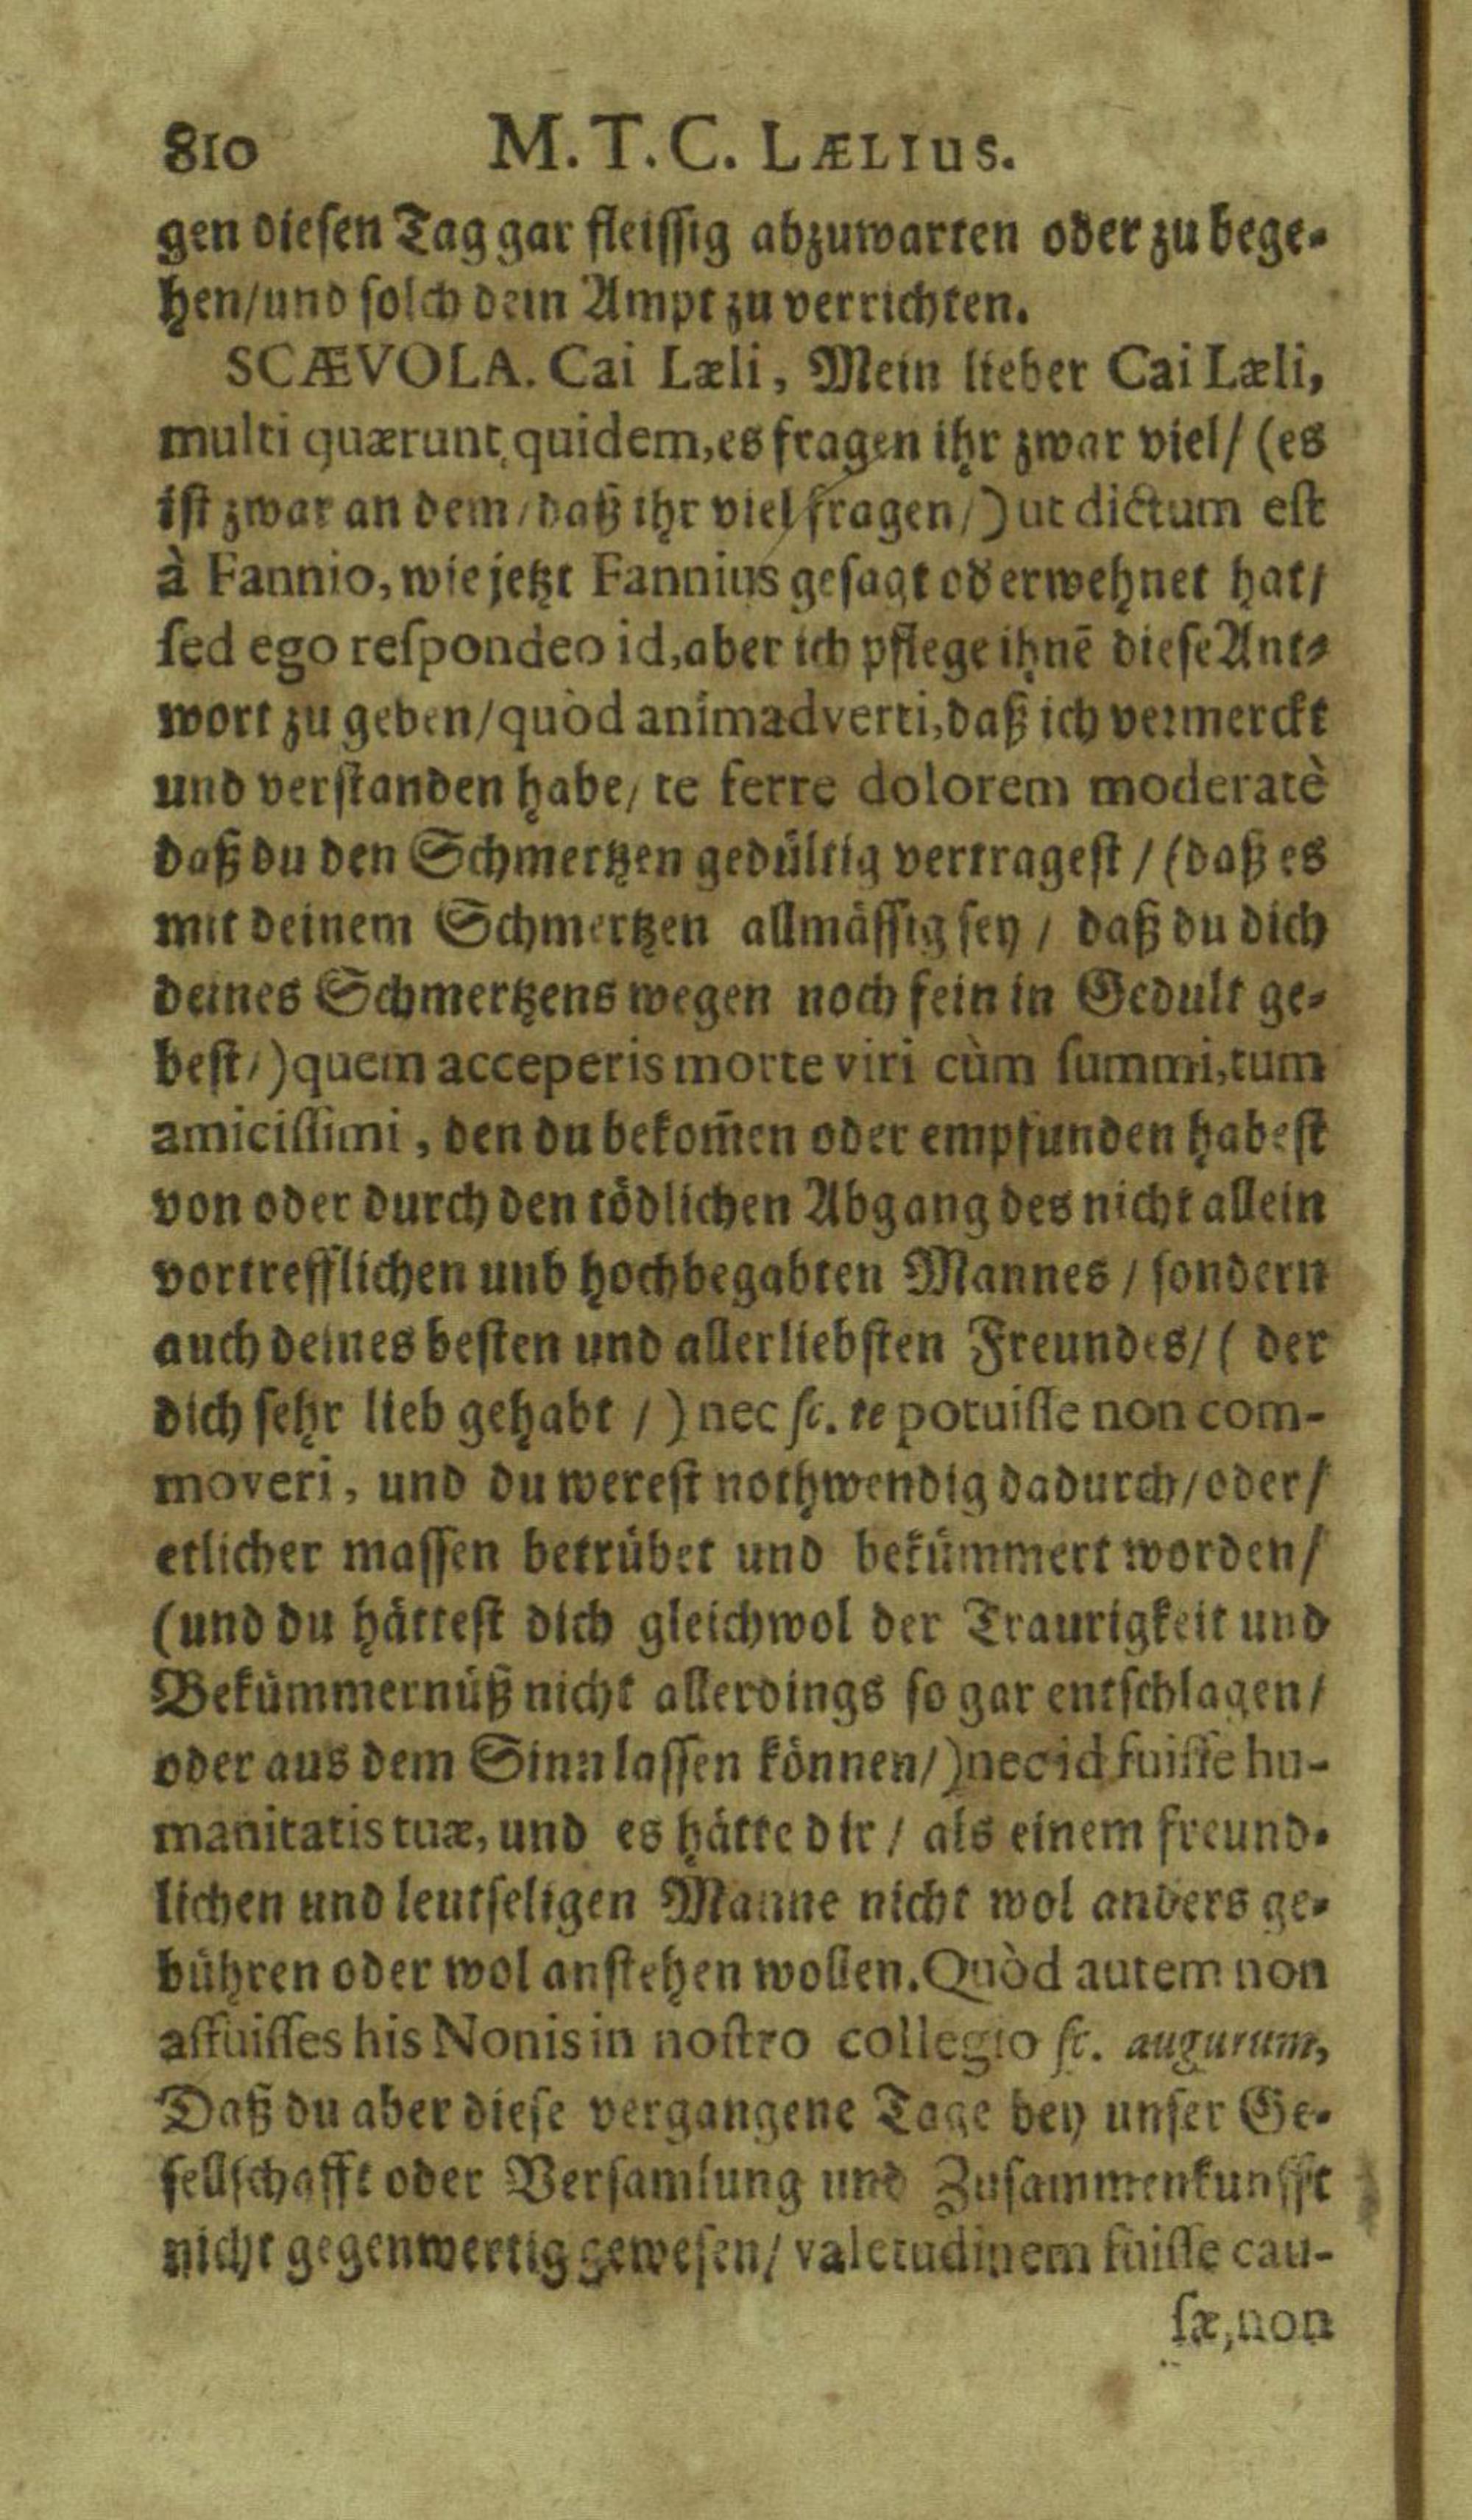 810 M. T. C. LÆLIUS.
gen diesen Tag gar fleissig abzuwarten oder zu bege-
hen/und solch dein Ampt zu verrichten.
SCÆVOLA. Cai Læli, Mein lieber Cai Læli,
multi quærunt quidem, es fragen ihr zwar viel/ (es
ist zwar an dem/daß ihr viel fragen/) ut dictum est
à Fannio, wie jetzt Fannius gesagt od erwehnet hat/
sed ego respondeo id, aber ich pflege ihnē diese Ant-
wort zu geben/quòd animadverti, daß ich vermerckt
und verstanden habe/ te ferre dolorem moderatè
daß du den Schmertzen gedültig vertragest / (daß es
mit deinem Schmertzen allmässig sey / daß du dich
deines Schmertzens wegen noch fein in Gedult ge-
best/) quem acceperis morte viri cùm summi, tum
amicissimi, den du bekom̄en oder empfunden habest
von oder durch den tödlichen Abgang des nicht allein
vortrefflichen unb hochbegabten Mannes / sondern
auch deines besten und allerliebsten Freundes/ ( der
dich sehr lieb gehabt /) nec sc. te potuisse non com-
moveri, und du werest nothwendig dadurch/oder/
etlicher massen betrübet und bekümmert worden/
(und du hättest dich gleichwol der Traurigkeit und
Bekümmernüß nicht allerdings so gar entschlagen/
oder aus dem Sinn lassen können/) nec id fuisse hu-
manitatis tuæ, und es hätte dir / als einem freund-
lichen und leutseligen Manne nicht wol anders ge-
bühren oder wol anstehen wollen. Quòd autem non
affuisses his Nonis in nostro collegio sc. augurum,
Daß du aber diese vergangene Tage bey unser Ge-
sellschafft oder Versamlung und Zusammenkunfft
nicht gegenwertig gewesen/ valetudinem fuisse cau-
sæ, non